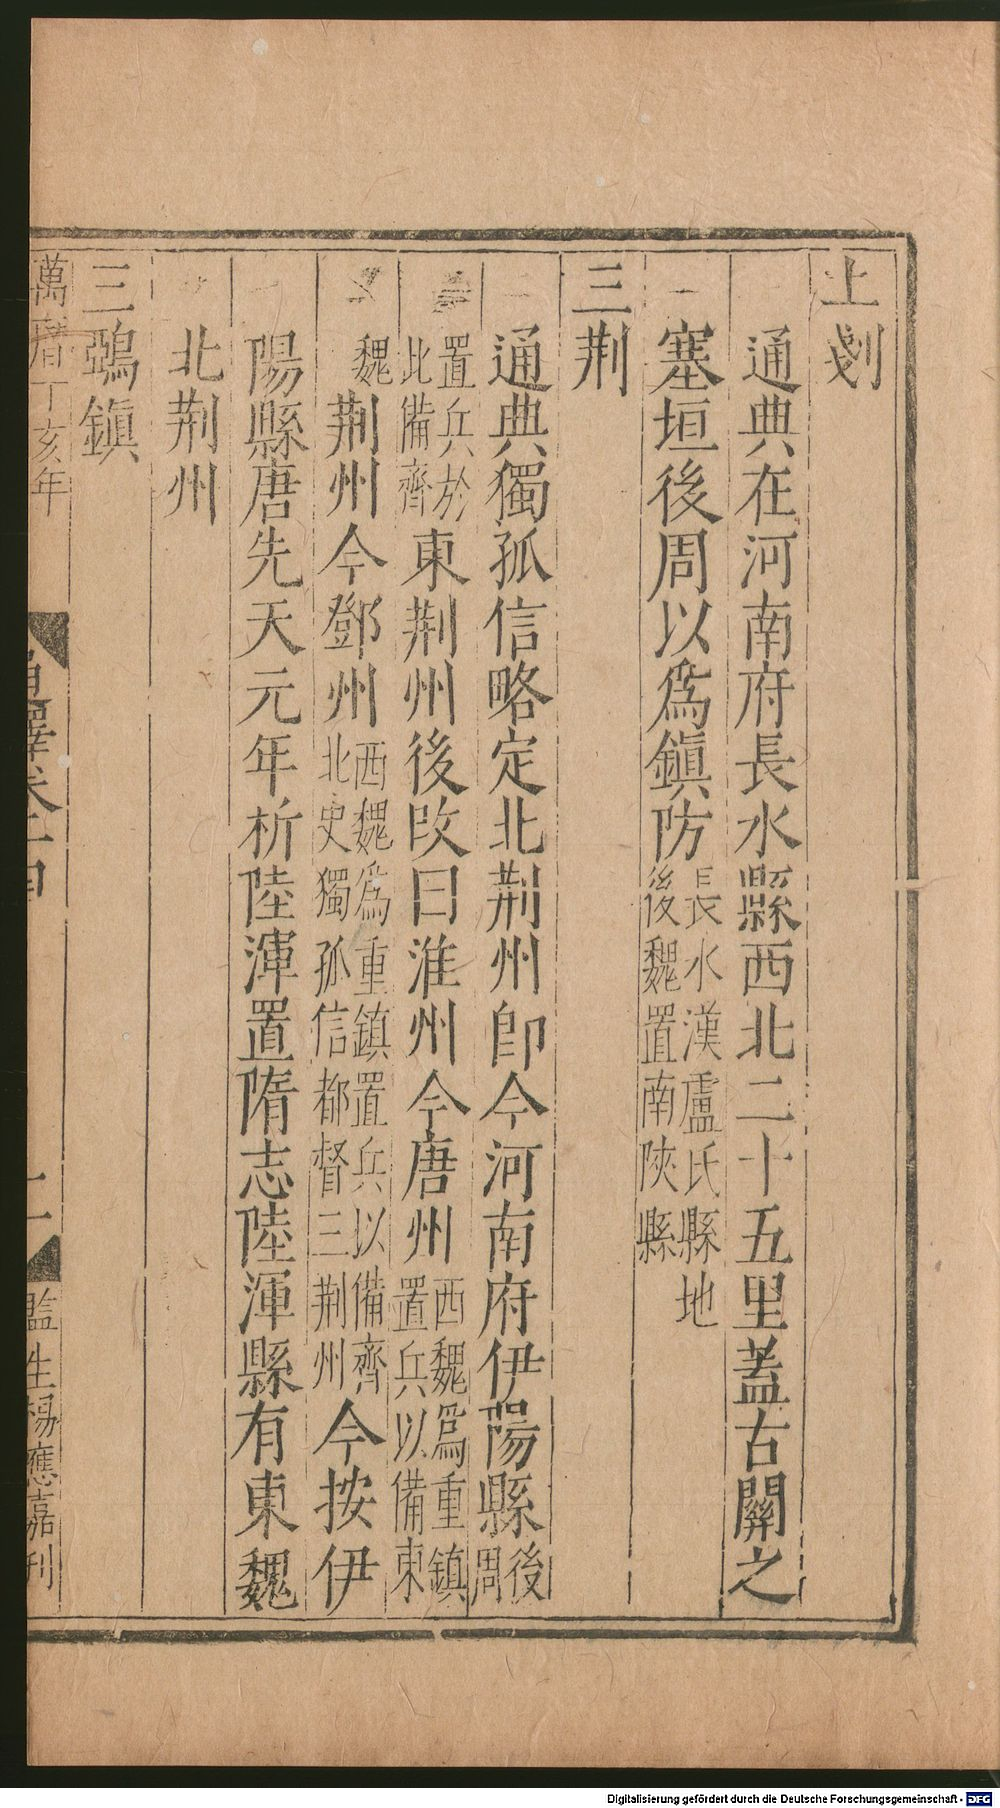 土剗
通典在河南府長水縣西北二十五里蓋古關之
塞垣後周以爲鎮防長水漢盧氏縣地後魏置南陝縣
三荆
通典獨孤信略定北荆州卽今河南府伊陽縣後周
置兵於此備齊東荆州後改曰淮州今唐州西魏爲重鎮置兵以備東
魏荆州今鄧州西魏爲重鎮置兵以備齊北史獨孤信都督三荆州今按伊
陽縣唐先天元年析陸渾置隋志陸渾縣有東魏
北荆州
三鵶鎮
萬曆丁亥年
卷十四
監生楊應嘉刊
Digitalisierung gefördert durch die Deutsche Forschungsgemeinschaft - DFG